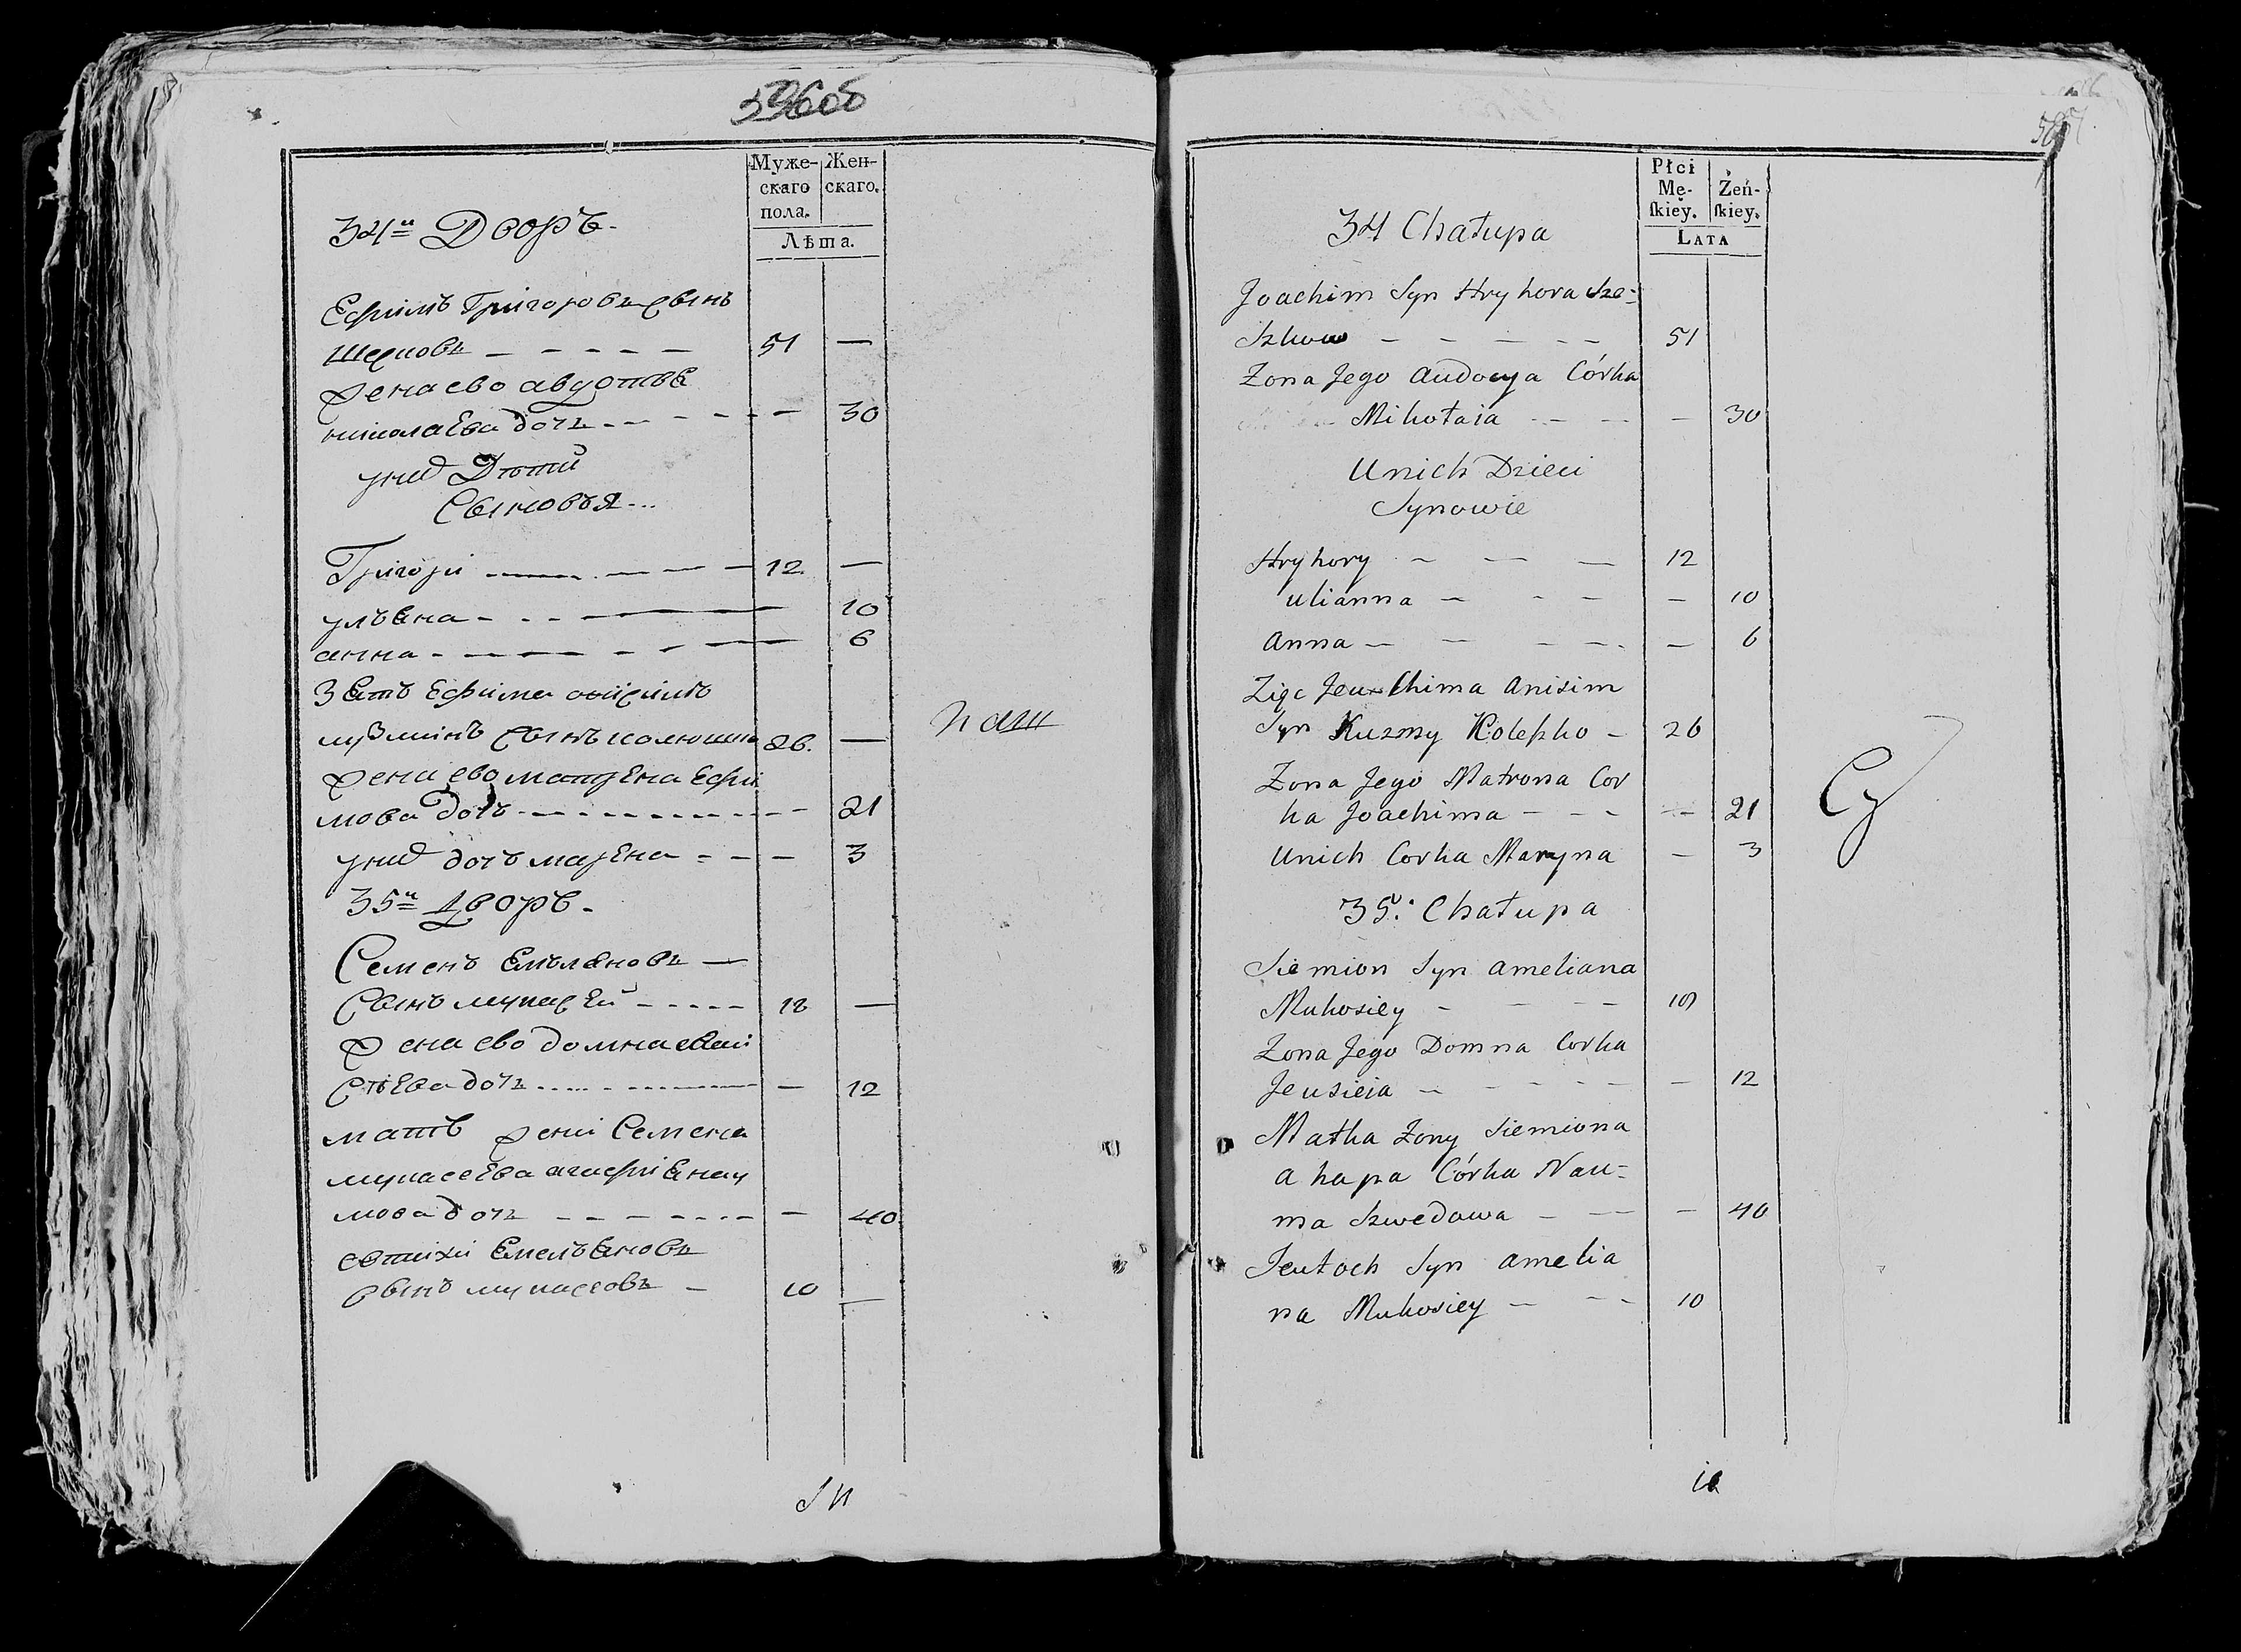 Муже-
скаго
пола.
Жен-
скаго.
Лѣта.
34й Дворъ.
Ефимъ Григоровъ сынъ
51 —
жена ево авдотья
николаева дочь — 30
уних Дѣти
Сыновья
Григори 12 —
ульяна 10
анна 6
Зять Ефима
кузминъ сынъ 26. —
жена ево матрена Ефи
мова дочь 21
уних дочь марена 3
35й Дворъ.
Семенъ Емъляновъ
сынъ мукасеи 18 —
жена ево домна евсеи
ева дочь — 12
мать жени Семена
мукасеева агафия нау
мова дочь — 40
евтихи Емельяновъ
сынъ мукасеовъ 10 —
Płci
Mę-
ſkiey.
Żeń-
ſkiey.
LATA
34 Chałupa
Joachim Syn Hryhora Sze-
szkow 51
Zona Jego Audocya Córka
Mikołaia — 30
Unich Dzieci
Synowie
Hryhory 12
Ulianna — 10
Anna — 6
Zięc Jeuchima Anisim
Syn Kuzmy Koleszko 26
Zona Jego Matrona Cor
ka Joachima — 21
Unich Corka Maryna — 3
35. Chałupa
Siemion Syn Ameliana
Mukosiey 18
Zona Jego Domna Corka
Jeusieia — 12
Matka Zony Siemiona
Ahapa Córka Nau-
ma Szwedowa — 40
Jeutoch Syn Amelia
na Mukosiey 10